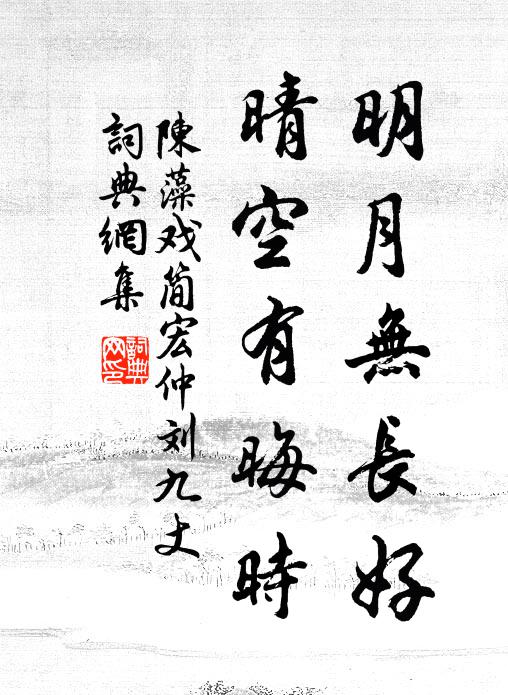 明月無長好
晴空有晦時
陳藻戏簡宏仲刘九丈
詞典網集
詞典網印